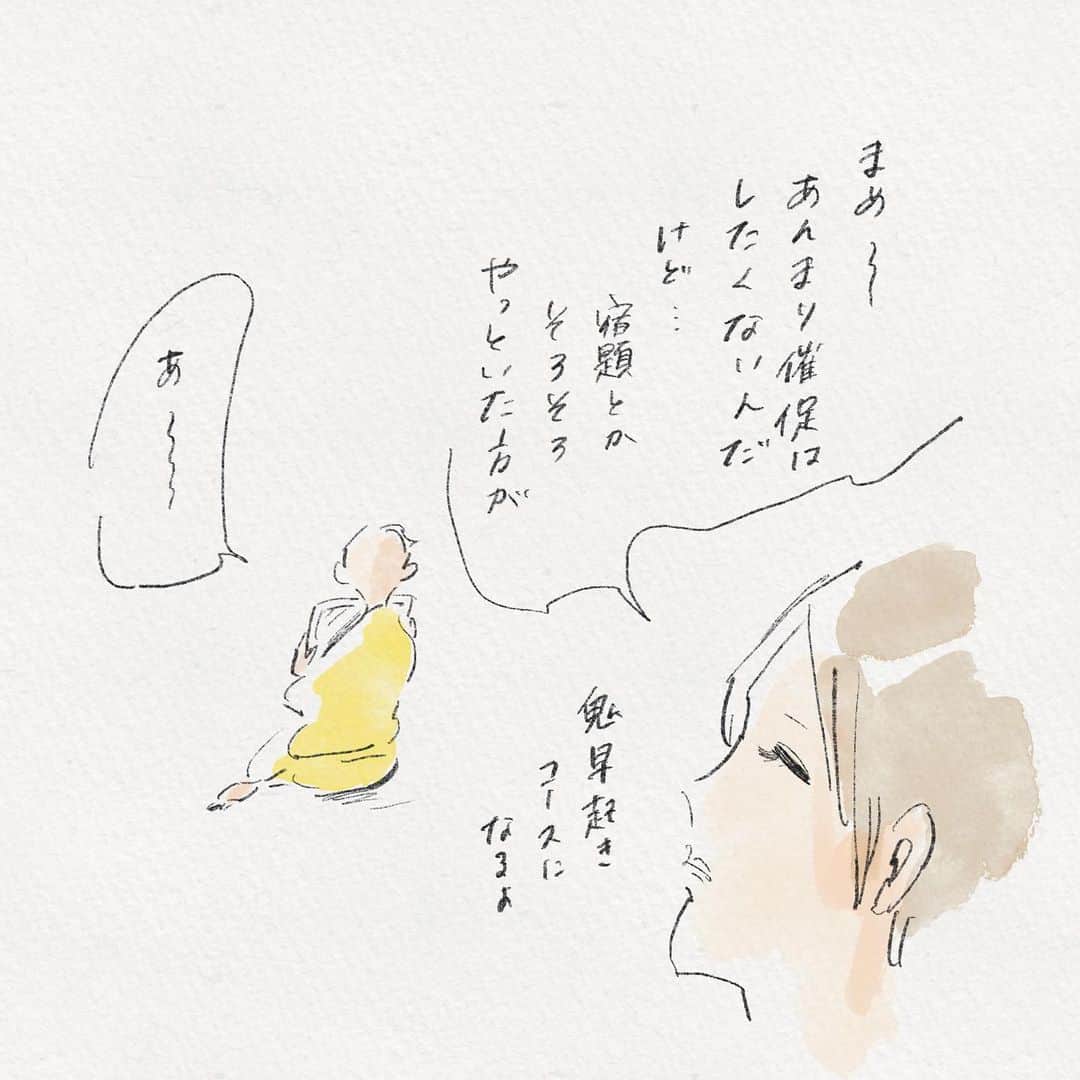 まめ〜
あんまり催促は
したくないんだ
けど…
宿題とか
そろそろ
やっといた方が
鬼早起き
コースに
なるよ
あ〜〜〜